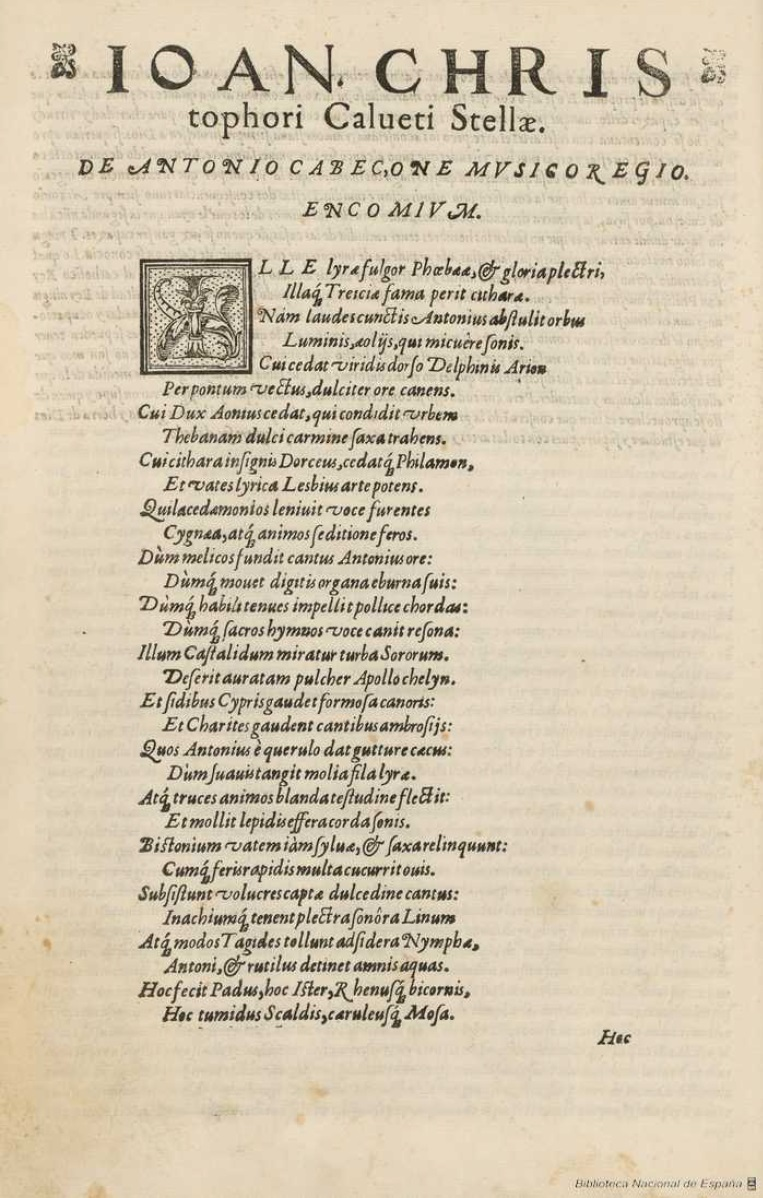 IOAN. CHRIS
tophori Calueti Stellæ.
DE ANTONIO CABEÇONE MVSICO REGIO.
ENCOMIVM.
ILLE lyræ fulgor Phœbææ, & gloria plectri,
Illaq́ Treiciæ fama perit citharæ.
Nam laudes cunctis Antonius abstulit orbus
Luminis, æolijs, qui micuêre sonis.
Cui cedat viridis dorso Delphinis Arion
Per pontum vectus, dulciter ore canens.
Cui Dux Aonius cedat, qui condidit vrbem
Thebanam dulci carmine saxa trahens.
Cui cithara insignis Dorceus, cedatq́ Philamon,
Et vates lyrica Lesbius arte potens.
Qui lacedæmonios leniuit voce furentes
Cygnæa, atq́ animos seditione feros.
Dùm melicos fundit cantus Antonius ore:
Dùmq́ mouet digitis organa eburna suis:
Dùmq́ habili tenues impellit pollice chordas:
Dùmq́ sacros hymnos voce canit resona:
Illum Castalidum miratur turba Sororum.
Deserit auratam pulcher Apollo chelyn.
Et fidibus Cypris gaudet formosa canoris:
Et Charites gaudent cantibus ambrosijs:
Quos Antonius è querulo dat gutture cæcus:
Dùm suauis tangit molia fila lyræ.
Atq́ truces animos blanda testudine flectit:
Et mollit lepidis effera corda sonis.
Bistonium vatem iàm syluæ, & saxa relinquunt:
Cumq́ feris rapidis multa cucurrit ouis.
Subsistunt volucres captæ dulcedine cantus:
Inachiumq́ tenent plectra sonôra Linum
Atq́ modos Tagides tollunt ad sidera Nymphæ,
Antoni, & rutilus detinet amnis aquas.
Hoc fecit Padus, hoc Ister, Rhenusq́ bicornis,
Hoc tumidus Scaldis, cæruleusq́ Mosa.
Hoc
Biblioteca Nacional de España